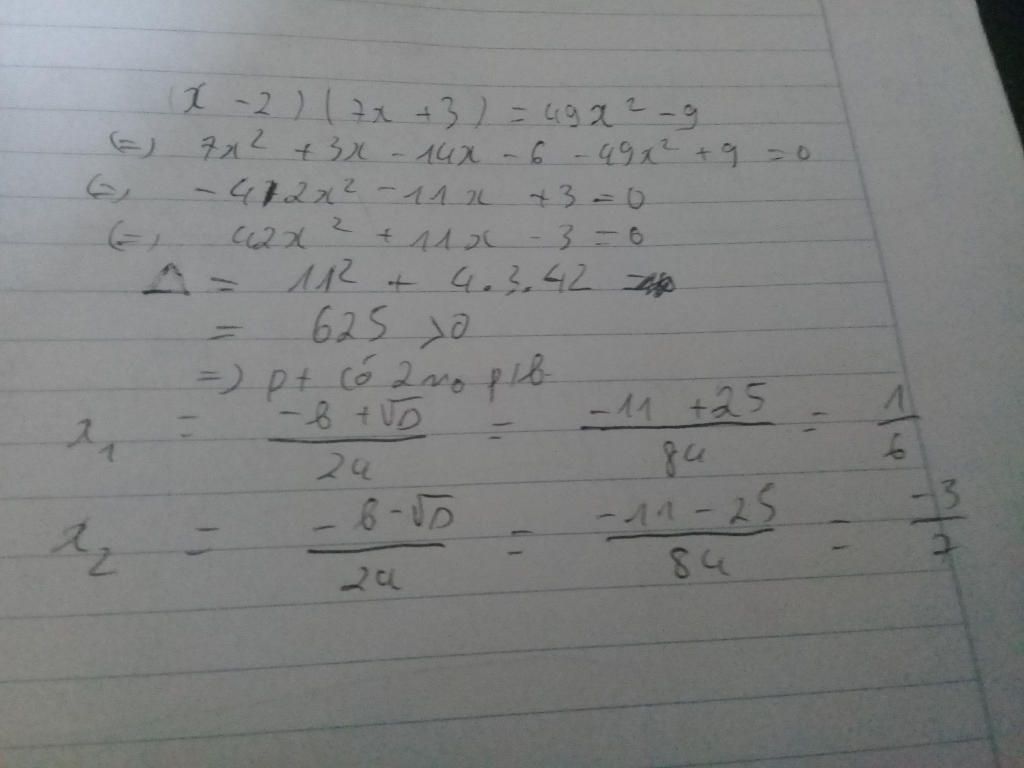 (x - 2) (7x + 3) = 49x² - 9
(=) 7x² + 3x - 14x - 6 - 49x² + 9 = 0
(=) - 42x² - 11x + 3 = 0
(=) 42x² + 11x - 3 = 0
Δ = 11² + 4.3.42
= 625 > 0
=) pt có 2 no pb
x₁ = (-b + √D)/2a = (-11 + 25)/84 = 1/6
x₂ = (-b - √D)/2a = (-11 - 25)/84 = -3/7